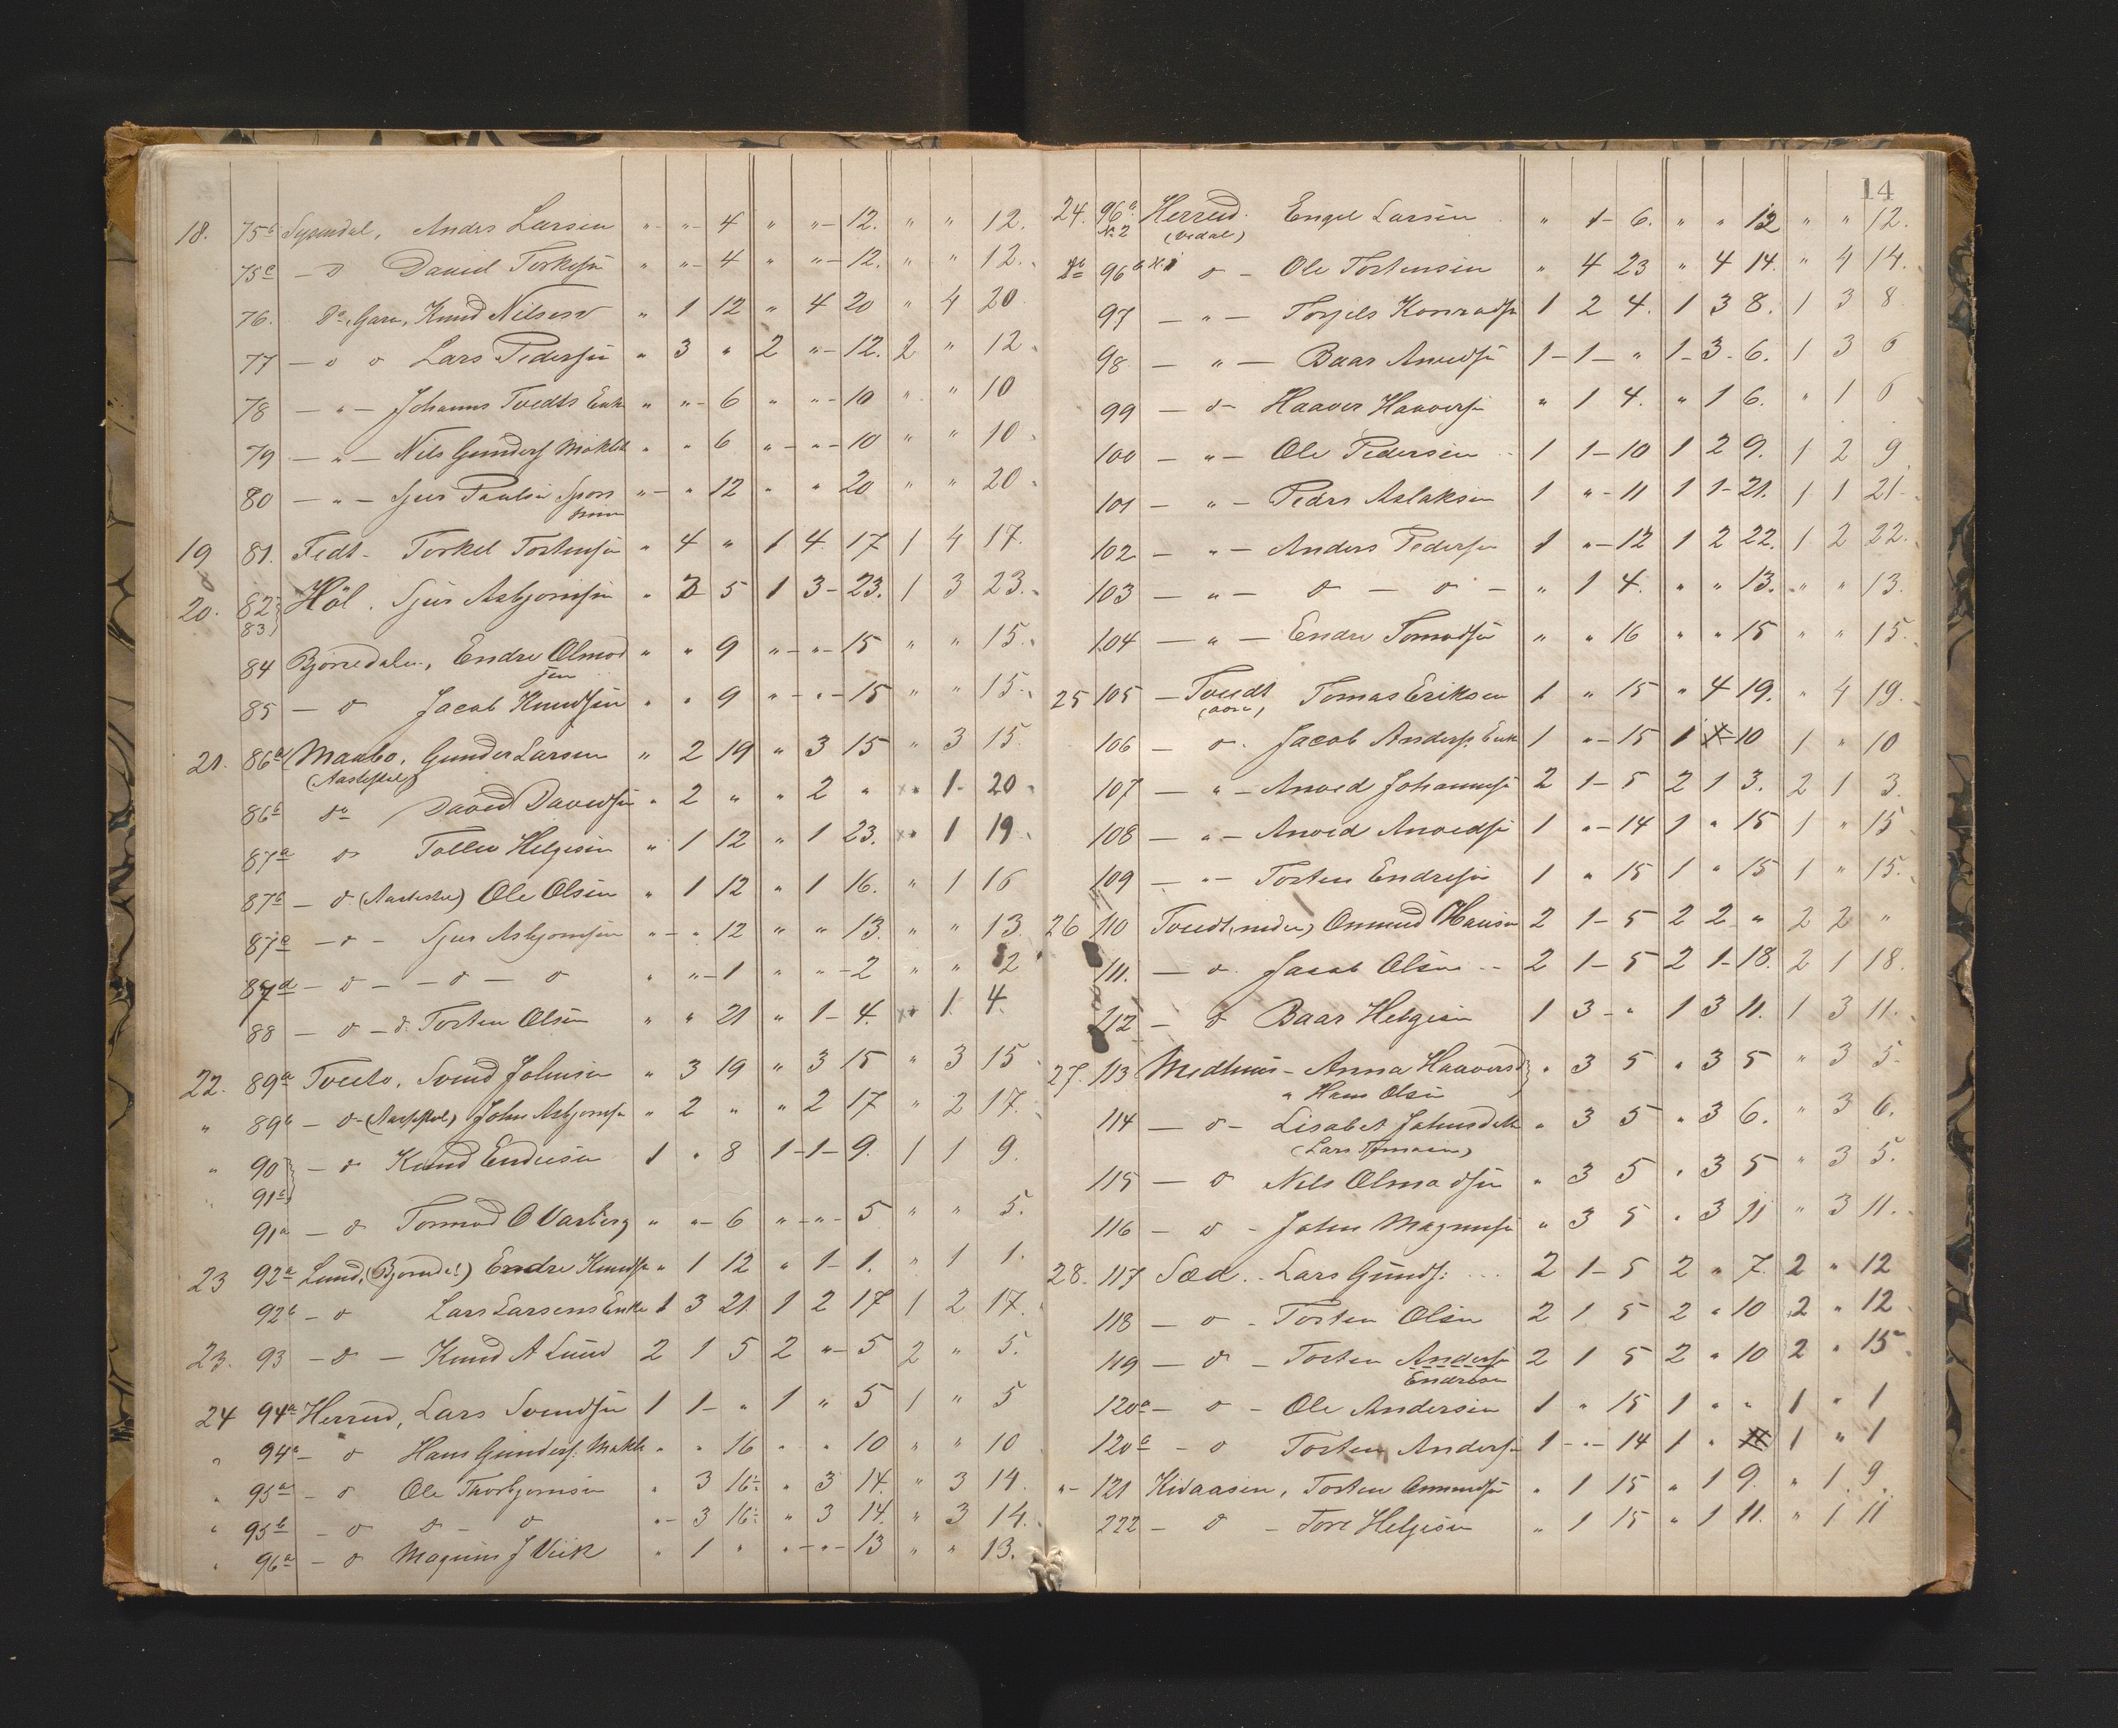 18. 75b Sysendal, Anders Larsen " - " - 4 " " - 12. " " 12.
75c - d David Torkelsen " " - 4 " " - 12. " " 12.
76. Do, Garen, Knud Nilsen " 1 12 " 4 20 " 4 20
77 - d d Lars Pedersen " 3 " 2 " - 12. 2 " 12
78 - " - Johanns Tvedts Enke " " - 6 " " - 10 " " 10
79 - " - Nils Gunders. Maklet " " 6 " - " - 10 " " 10
80 - " - Sjur Paulsen " - " 12 " " 20 " " 20
19 81. Fedt - Torkel Torstensen " 4 " 1 4 17 1 4 17.
20. 82 Höl. Sjur Asbjornsen " 3 5 1 3 - 23. 1 3 23.
83
84 Bjoredalen, Endre Olmod " " 9 " - " - 15 " " 15.
sen
85 - d Jacob Knudsen " " 9 " - " - 15 " " 15.
21. 86a Maabo, Gunder Larsen " 2 19 " 3 15 " 3 15.
86b do David Davidsen " 2 " " 2 " " 1 - 20
87a d Tollev Helgesen " 1 12 " 1 23. " 1 19
87b - d Ole Olsen " 1 12 " 1 16. " 1 16
87c - d - Sjur Asbjornsen " - " 12 " " 13. " " 13.
87d - d - - d - d " " - 1 " " - 2 " " 2
88 - d - d. Torsten Olsen " " 21 " 1 - 4. " 1. 4.
22. 89a Tveito, Svend Johnsen " 3 19 " 3 15 " 3 15
" 89b - d - John Asbjornsen " 2 " " 2 17 " 2 17.
" 90 - d Knud Endresen 1 " 8 1 - 1 - 9. 1 1 9.
" 91b
91a - d Tormod O Varberg " " - 6 " - " - 5 " " 5.
23 92a Lund, (Bjoredal) Endre Knudsen " 1 12 " 1 - 1. " 1 1.
92b - d Lars Larsens Enke 1 3 21 1 2 17 1 2 17.
23. 93 - d - Knud A Lund 2 1 5 2 " - 5 2 " 5.
24 94a Herreid, Lars Svendsen 1 1 - " 1 " 5 1 " 5
" 94 - d Hans Gunders. Makle " " 16 " " 10 " " 10
" 95a - d Ole Thorbjornsen " 3 16 " 3 14. " 3 14.
" 95b - d d - d " - 3 16 " 3 14. " 3 14.
" 96a - d Magnus J Viik " 1 " " - " - 13 " " 13.
14
24. 96a Herreid. Engel Larsen " 1 - 6. " " 12 " " 12.
No 2 (Vedal)
Do 96b d - Ole Torstensen " 4 23 " 4 14. " 4 14.
97 - " - Torjels Konradsen 1 2 4. 1 3 8. 1 3 8
98 - " - Baar Anvedsen 1 - 1 - " 1 - 3 - 6. 1 3 6
99 - d - Haaver Haaversen " 1 4. " 1 6. " 1 6
100 - " - Ole Pedersen 1 1 - 10 1 2 9. 1 2 9
101 - " - Peder Aslaksen 1 " - 11 1 1 - 21. 1 1 21
102 - " - Anders Pedersen 1 " - 12 1 2 22. 1 2 22.
103 - " - d - d - " 1 4. " " 13. " " 13.
104 - " - Endre Tormodsen " " 16 " " 15 " " 15.
25 105 - Tvedt Tomas Eriksen 1 " 15 " 4 19. " 4 19.
106 - d. Jacob Anders. Enke 1 " - 15 1 10 1 " 10
107 - " - Anved Johannesen 2 1 - 5 2 1 3. 2 1 3.
108 - " - Anved Anvedsen 1 " - 14 1 " 15 1 " 15
109 - " - Torsten Endresen 1 " 15 1 " 15 1 " 15.
26 110 Tvedt, nedre, Ommund Hansen 2 1 - 5 2 2 " 2 2 "
111. - d. Jacob Olsen - - 2 1 - 5 2 1 - 18. 2 1 18.
112 - d Baar Helgesen 1 3 - " 1 3 11. 1 3 11.
27. 113 Medhus - Anna Haaversd " 3 5 " 3 5 " 3 5
" Hans Olsen
114 - d - Lisabet Johnsdatter " 3 5 " 3 6. " 3 6.
115 - d Nils Olmodsen " 3 5 " 3 5 " 3 5.
116 - d - John Magnusen " 3 5 " 3 11 " 3 11.
28. 117 Sæd. - Lars Gunds. 2 1 - 5 2 " 7. 2 " 12
118 - d - Torsten Olsen 2 1 5 2 " 10 2 " 12
119 - d - Torsten Andersen 2 1 5 2 " 10 2 " 15
Endresen
120a - d - Ole Andersen 1 " 15 1 " " 1 " 1
120b - d Torsten Andersen 1 - " - 14 1 " 1 " 1
" - 121 Kvaasen, Torsten Ommundsen " 1 15 " 1 9. " 1 9.
222 - d - Tore Helgesen " 1 15 " 1 11. " 1 11